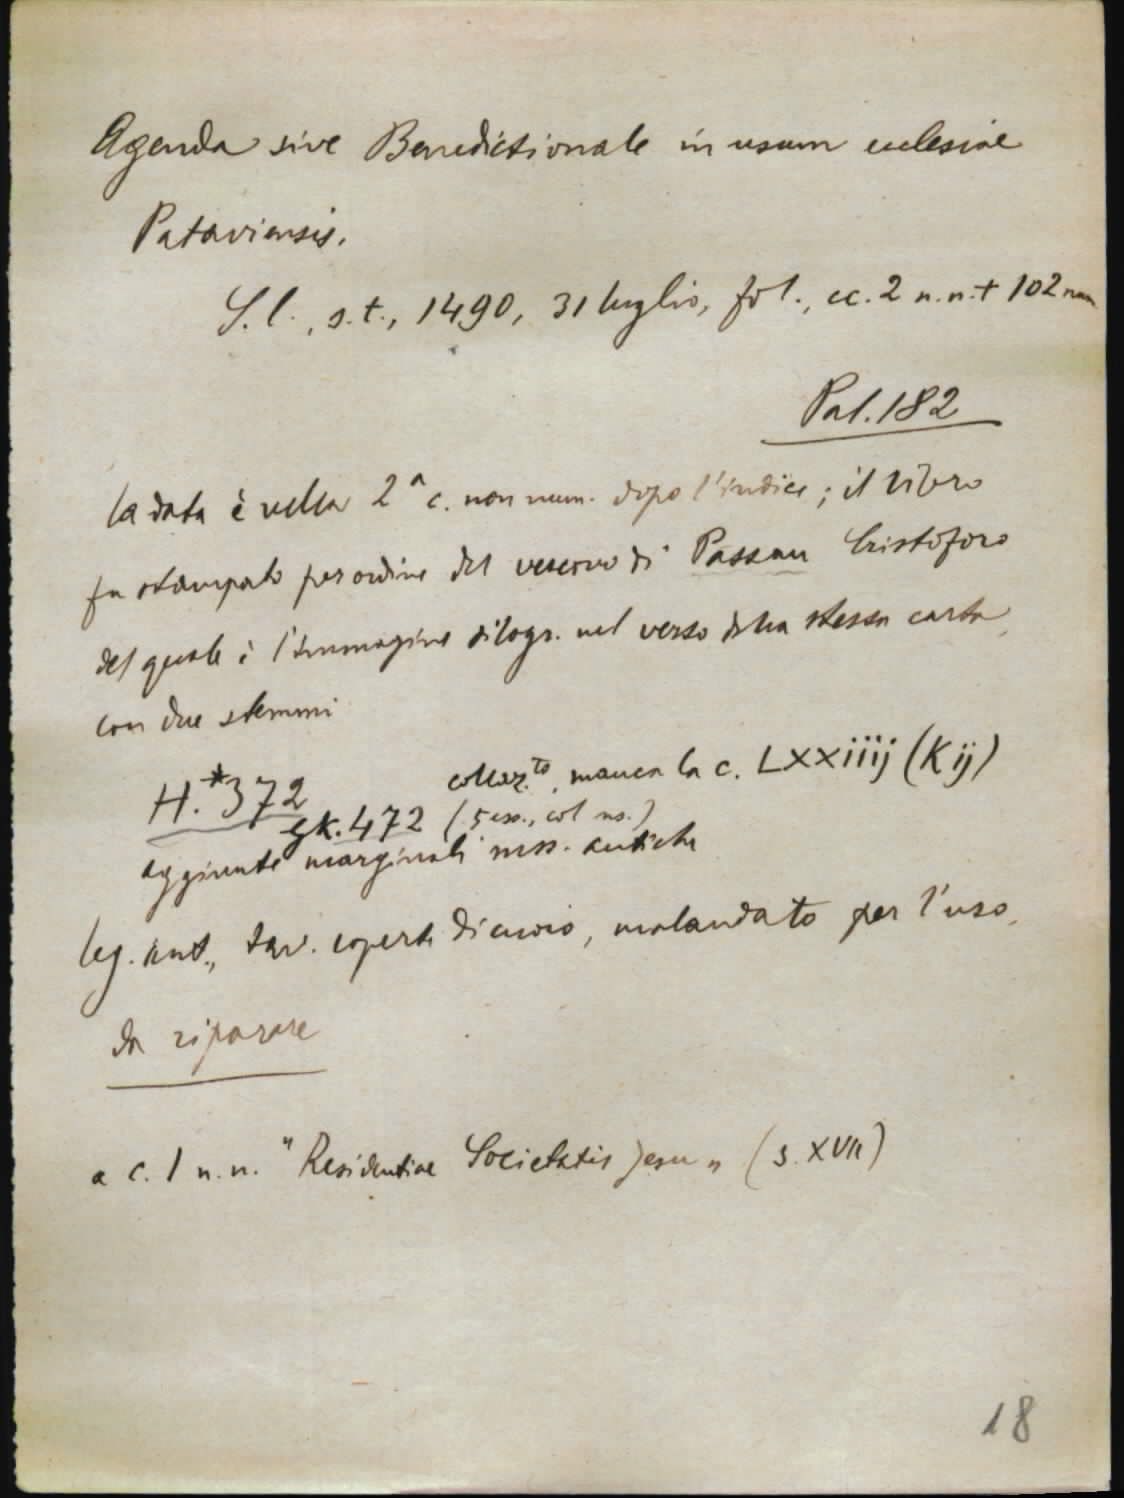 Agenda sive Benedictionale in usum ecclesiae
Pataviensis.
S. l., s. t., 1490, 31 luglio, fol., cc. 2 n. n. + 102 num
Pal. 182
la data è nella 2ª c. non num. dopo l'indice; il libro
fu stampato per ordine del vescovo di Passau Cristoforo
del quale è l'immagine silogr. nel verso della stessa carta
con due stemmi
H. *372 collaz.to, manca la c. LXXiiij (K ij)
GK. 472 (5 es., col ns.)
aggiunte marginali mss. antiche
leg. ant., tav. coperte di cuoio, malandato per l'uso,
da riparare
a c. 1 n. n. "Residentiae Societatis Jesu" (s. XVII)
18